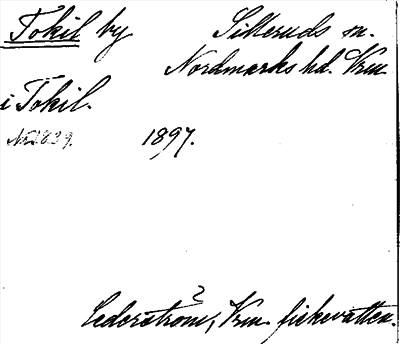 Tokil by Silleruds sn.
Nordmarks hd. Vrm.
i Tokil.
Nr 1839. 1897.
Cederström, Vrm. fiskevatten.